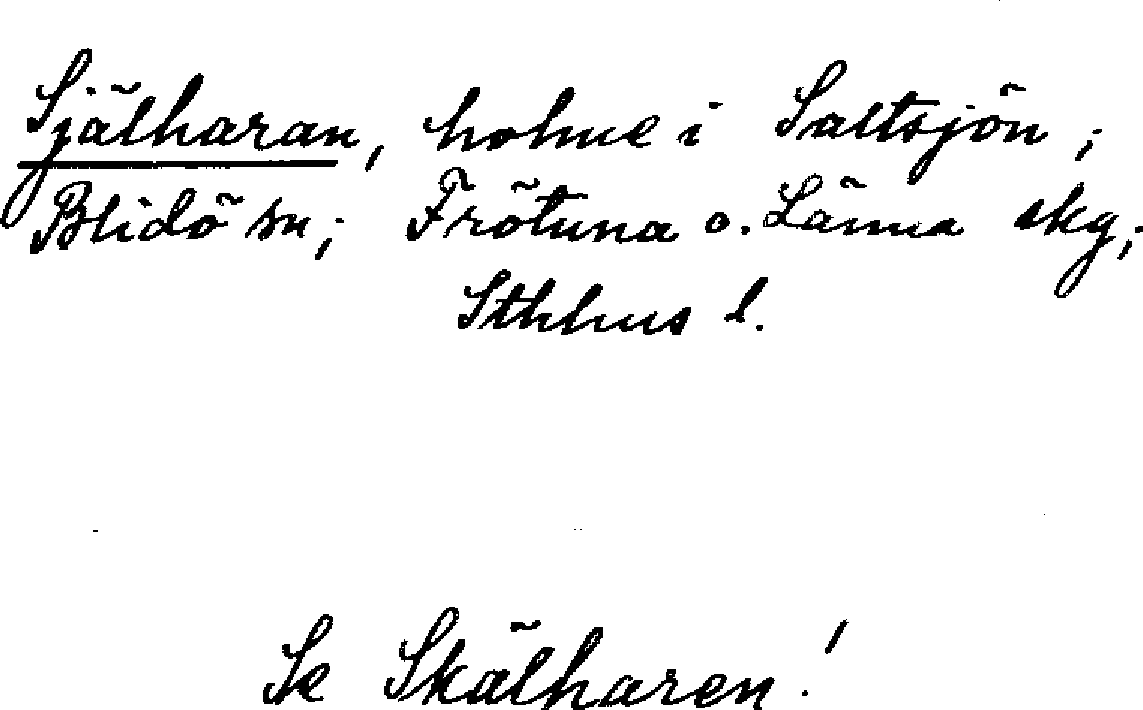 Själharan, holme i Saltsjön;
Blidö sn; Frötuna o. Länna skg;
Sthlms l.
Se Skälharen!